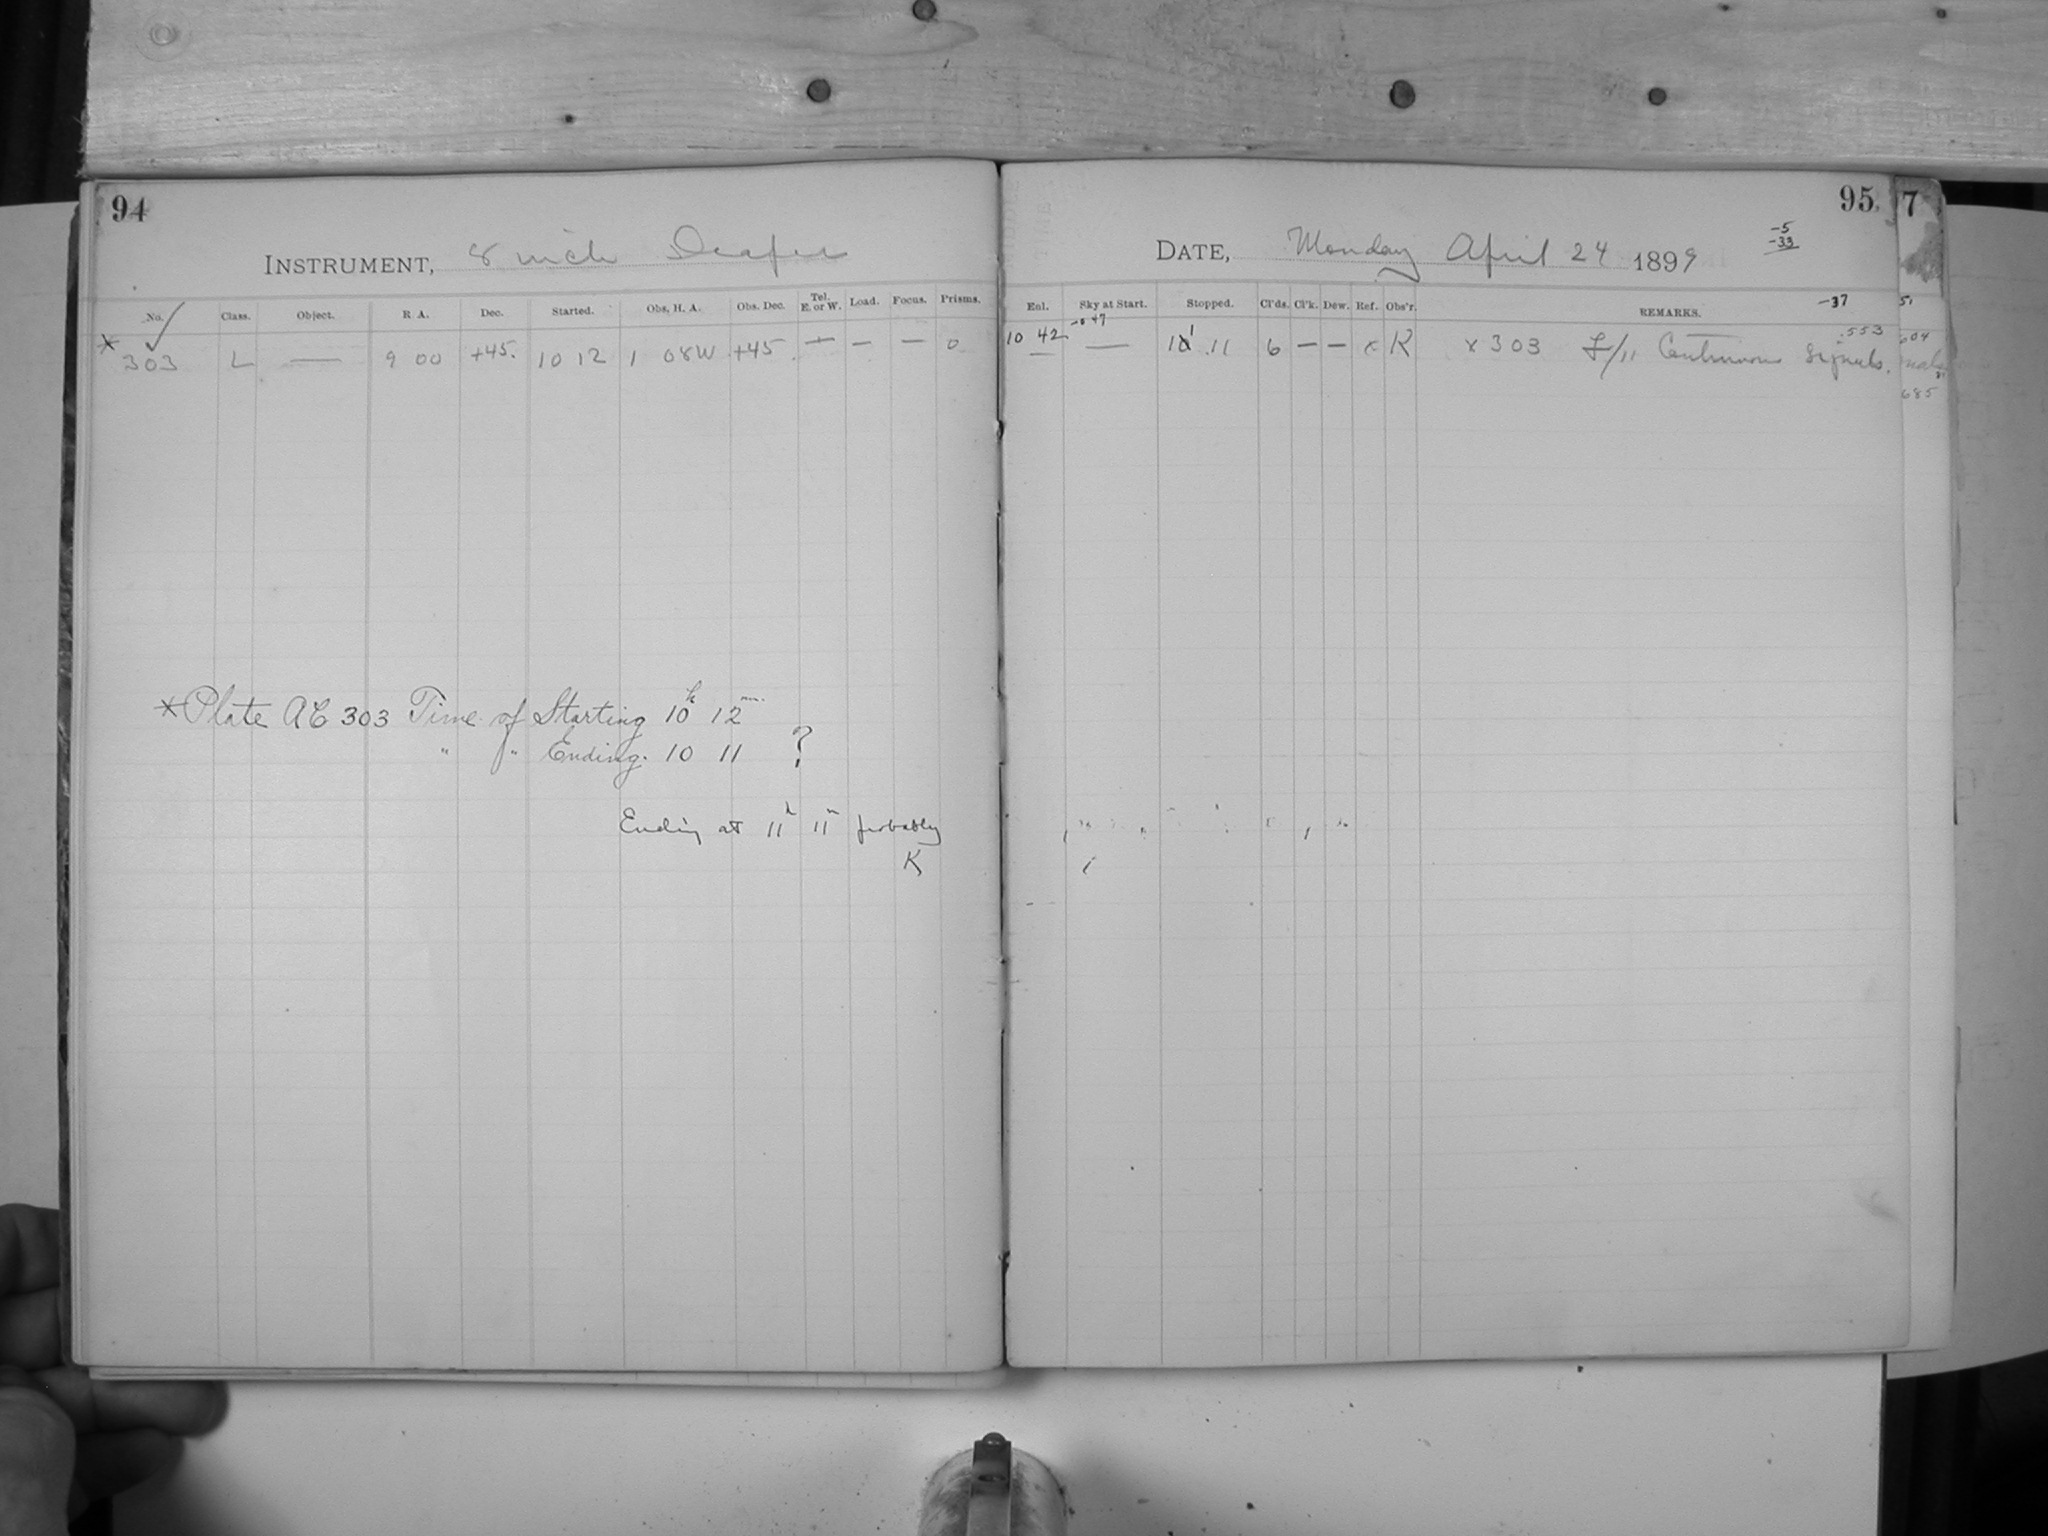 94
INSTRUMENT, 8 inch Draper
No. Class. Object. R. A. Dec. Started. Obs. H. A. Obs. Dec. Tel. E. or W. Load. Focus. Prisms.
* 303 L — 9 00 +45. 10 12 1 08W +45 — — — 0
*Plate AC 303 Time of Starting 10h 12m.
" " Ending. 10 11 ?
Ending at 11h 11m probably
K
95. 7
DATE, Monday April 24 1899
-5
-33
-37
Enl. Sky at Start. Stopped. Cl'ds. Cl'k. Dew. Ref. Obs'r. REMARKS.
10 42 -0 47 — 10 1 11 6 — — c K x 303 F/11 Continuous Signals. .553
51
604
685